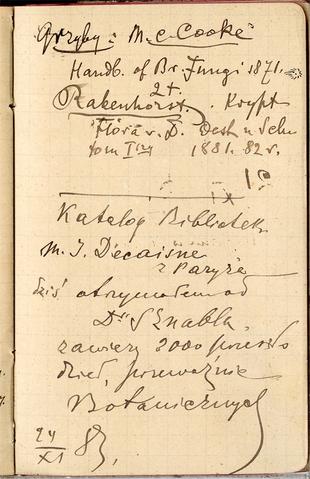 Grzyby: M. C. Cooke
Handb. of Br. Fungi 1871.
2 t.
Rabenhorst. Krypt
Flora v. D. Oest u Schw
tom I 1881. 82 r.
Katalog Bibliotek
M. J. Decaisne
z Paryża
dziś otrzymałem od
Dr Sznabla,
zawiera 2000 przeszło
dzieł, przeważnie
Botanicznych
24/XI 83.